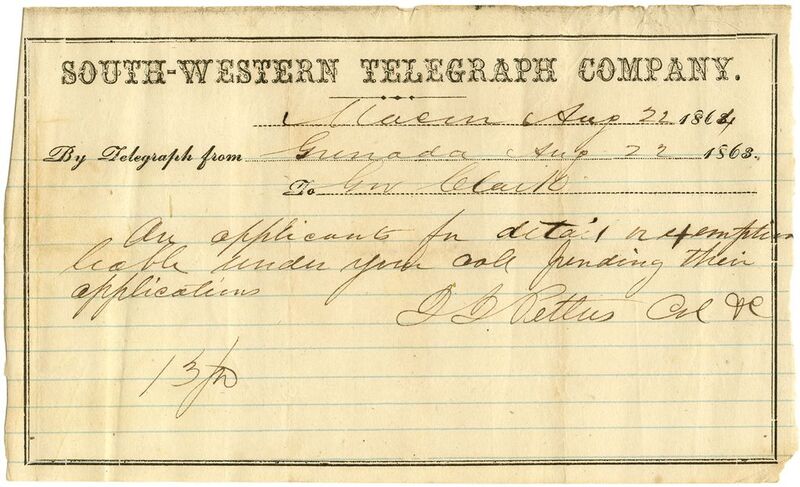 SOUTH-WESTERN TELEGRAPH COMPANY.
Macon Aug 22 1864
By Telegraph from Grenada Aug 22 1863.
To Gov Clark
Are applicants for detail or exemption
liable under your call pending their
applications
J J Pettus Col &C
13